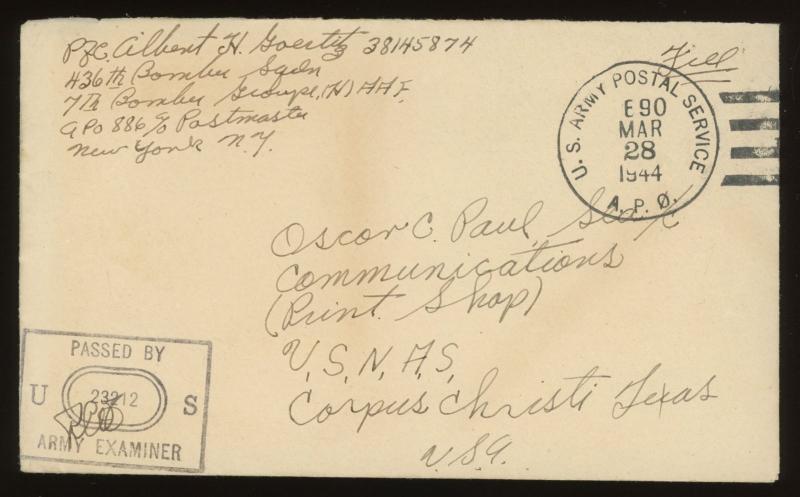 Pfc. Albert H. Goertz 38145874
436th Bomber Sqdn
7th Bomber Groupe, (H) AAF
APO 886 c/o Postmaster
New York N.Y.
Free
U. S. ARMY POSTAL SERVICE
A. P. O.
E90
MAR
28
1944
Oscar C. Paul Sea/c
Communications
(Print Shop)
U.S.N.A.S.
Corpus Christi Texas
U.S.A.
PASSED BY
U 23212 S
ARMY EXAMINER